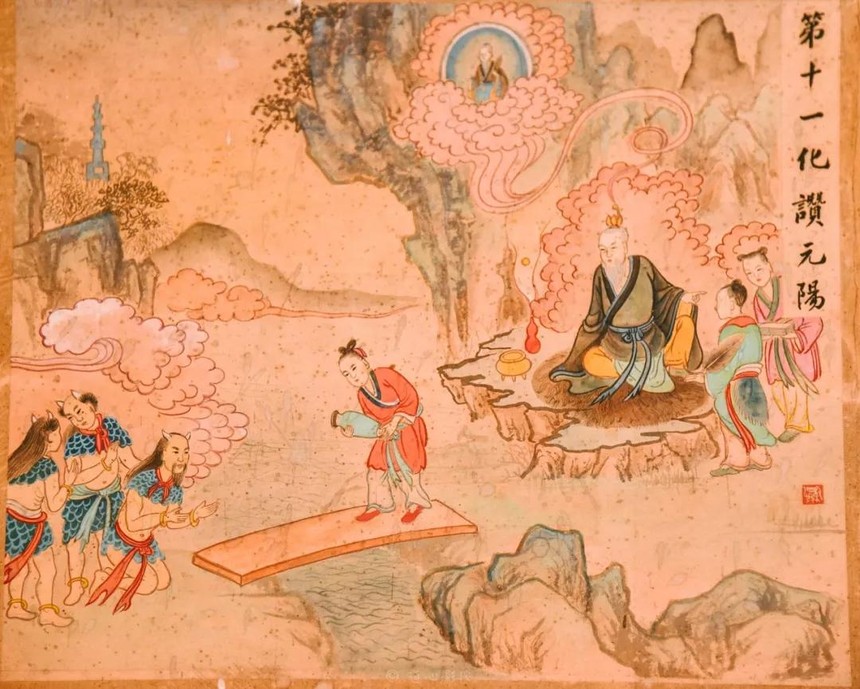 第十一化讚元陽